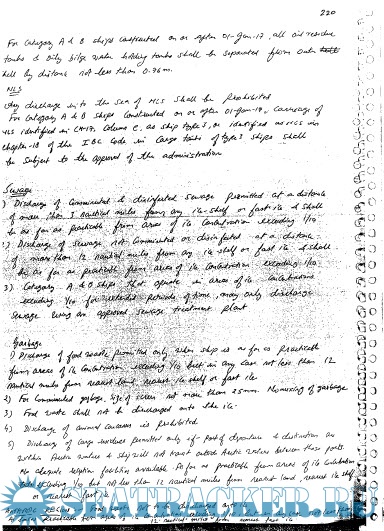 220
For Category A & B ships constructed on or after 01-Jan-17, all oil residue
tanks & oily bilge water holding tanks shall be separated from outer
hell by distance not less than 0.76m.
NLS
Any discharge into the sea of NLS shall be prohibited
For Category A & B ships constructed on or after 01-Jan-17, carriage of
NLS identified in CH-17, Column e, as ship type 3, or identified as NLS in
chapter-18 of the IBC Code in Cargo tanks of type 3 ships shall
be subject to the approval of the administration
Sewage
1) Discharge of Comminuted & disinfected sewage permitted at a distance
of more than 3 nautical miles from any ice-shelf or fast ice & shall
be as far as practicable from areas of ice Concentration exceeding 1/10
2) Discharge of Sewage not Comminuted or disinfected at a distance
of more than 12 nautical miles from any ice shelf or fast ice & shall
be as far as practicable from areas of ice Concentration exceeding 1/10.
3) Category A & B ships that operate in areas of ice Concentrations
exceeding 1/10 for extended periods of time, may only discharge
Sewage using an approved sewage treatment plant
Garbage
1) Discharge of food waste permitted only when ship is as far as practicable
from areas of ice Concentration exceeding 1/10 but in any case not less than 12
nautical miles from nearest land, nearest ice shelf or fast ice
2) For Comminuted garbage, size of screen not more than 25mm. No mixing of garbage
3) Food waste shall not be discharged onto the ice.
4) Discharge of animal carcasses is prohibited
5) Discharge of Cargo residues permitted only if - port of departure & destination are
within Arctic waters & ship will not transit outside Arctic waters between those ports.
No adequate reception facilities available. As far as practicable from areas of ice Concentration
exceeding 1/10 but not less than 12 nautical miles from nearest land, nearest ice shelf
or nearest fast ice
SEATRACKER.RU